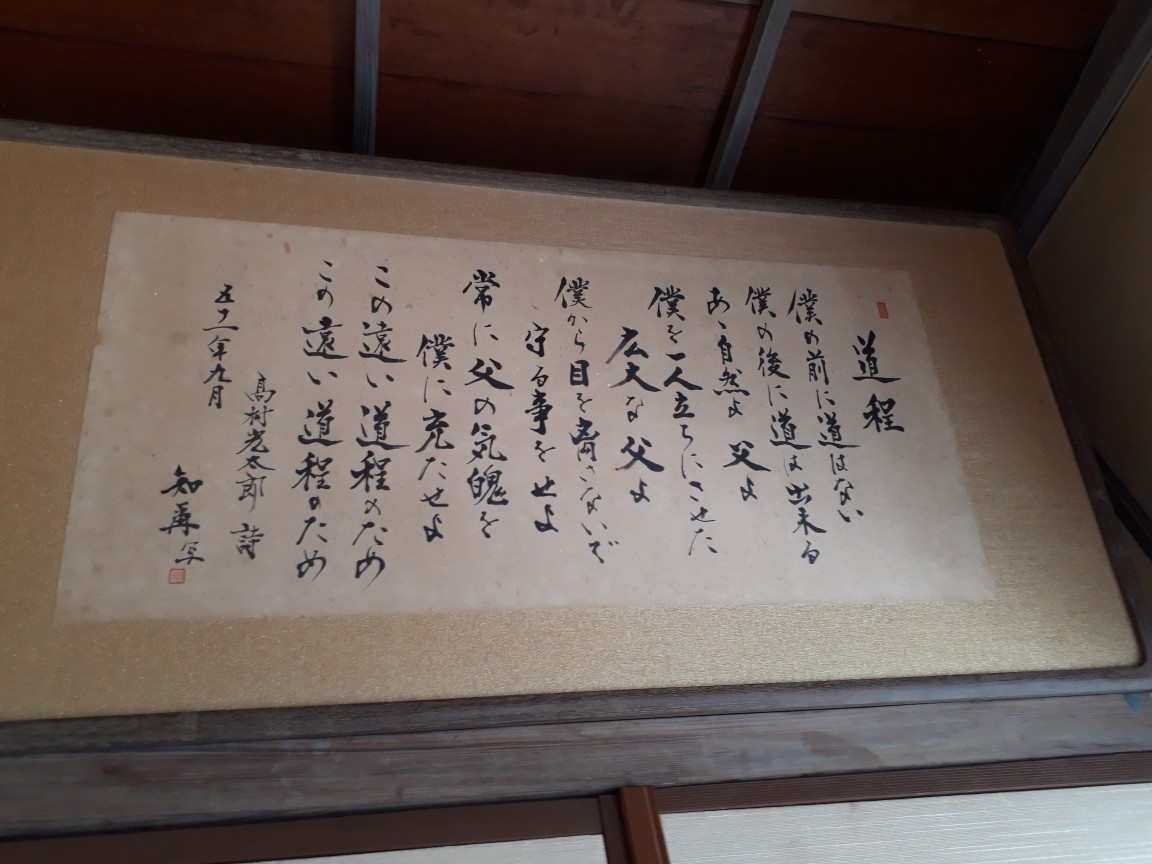 道程
僕の前に道はない
僕の後に道は出来る
あゝ自然よ 父よ
僕を一人立ちにさせた
広大な父よ
僕から目を離さないで
守る事をせよ
常に父の気魄を
僕に充たせよ
この遠い道程のため
この遠い道程のため
高村光太郎 詩
五二年九月
写